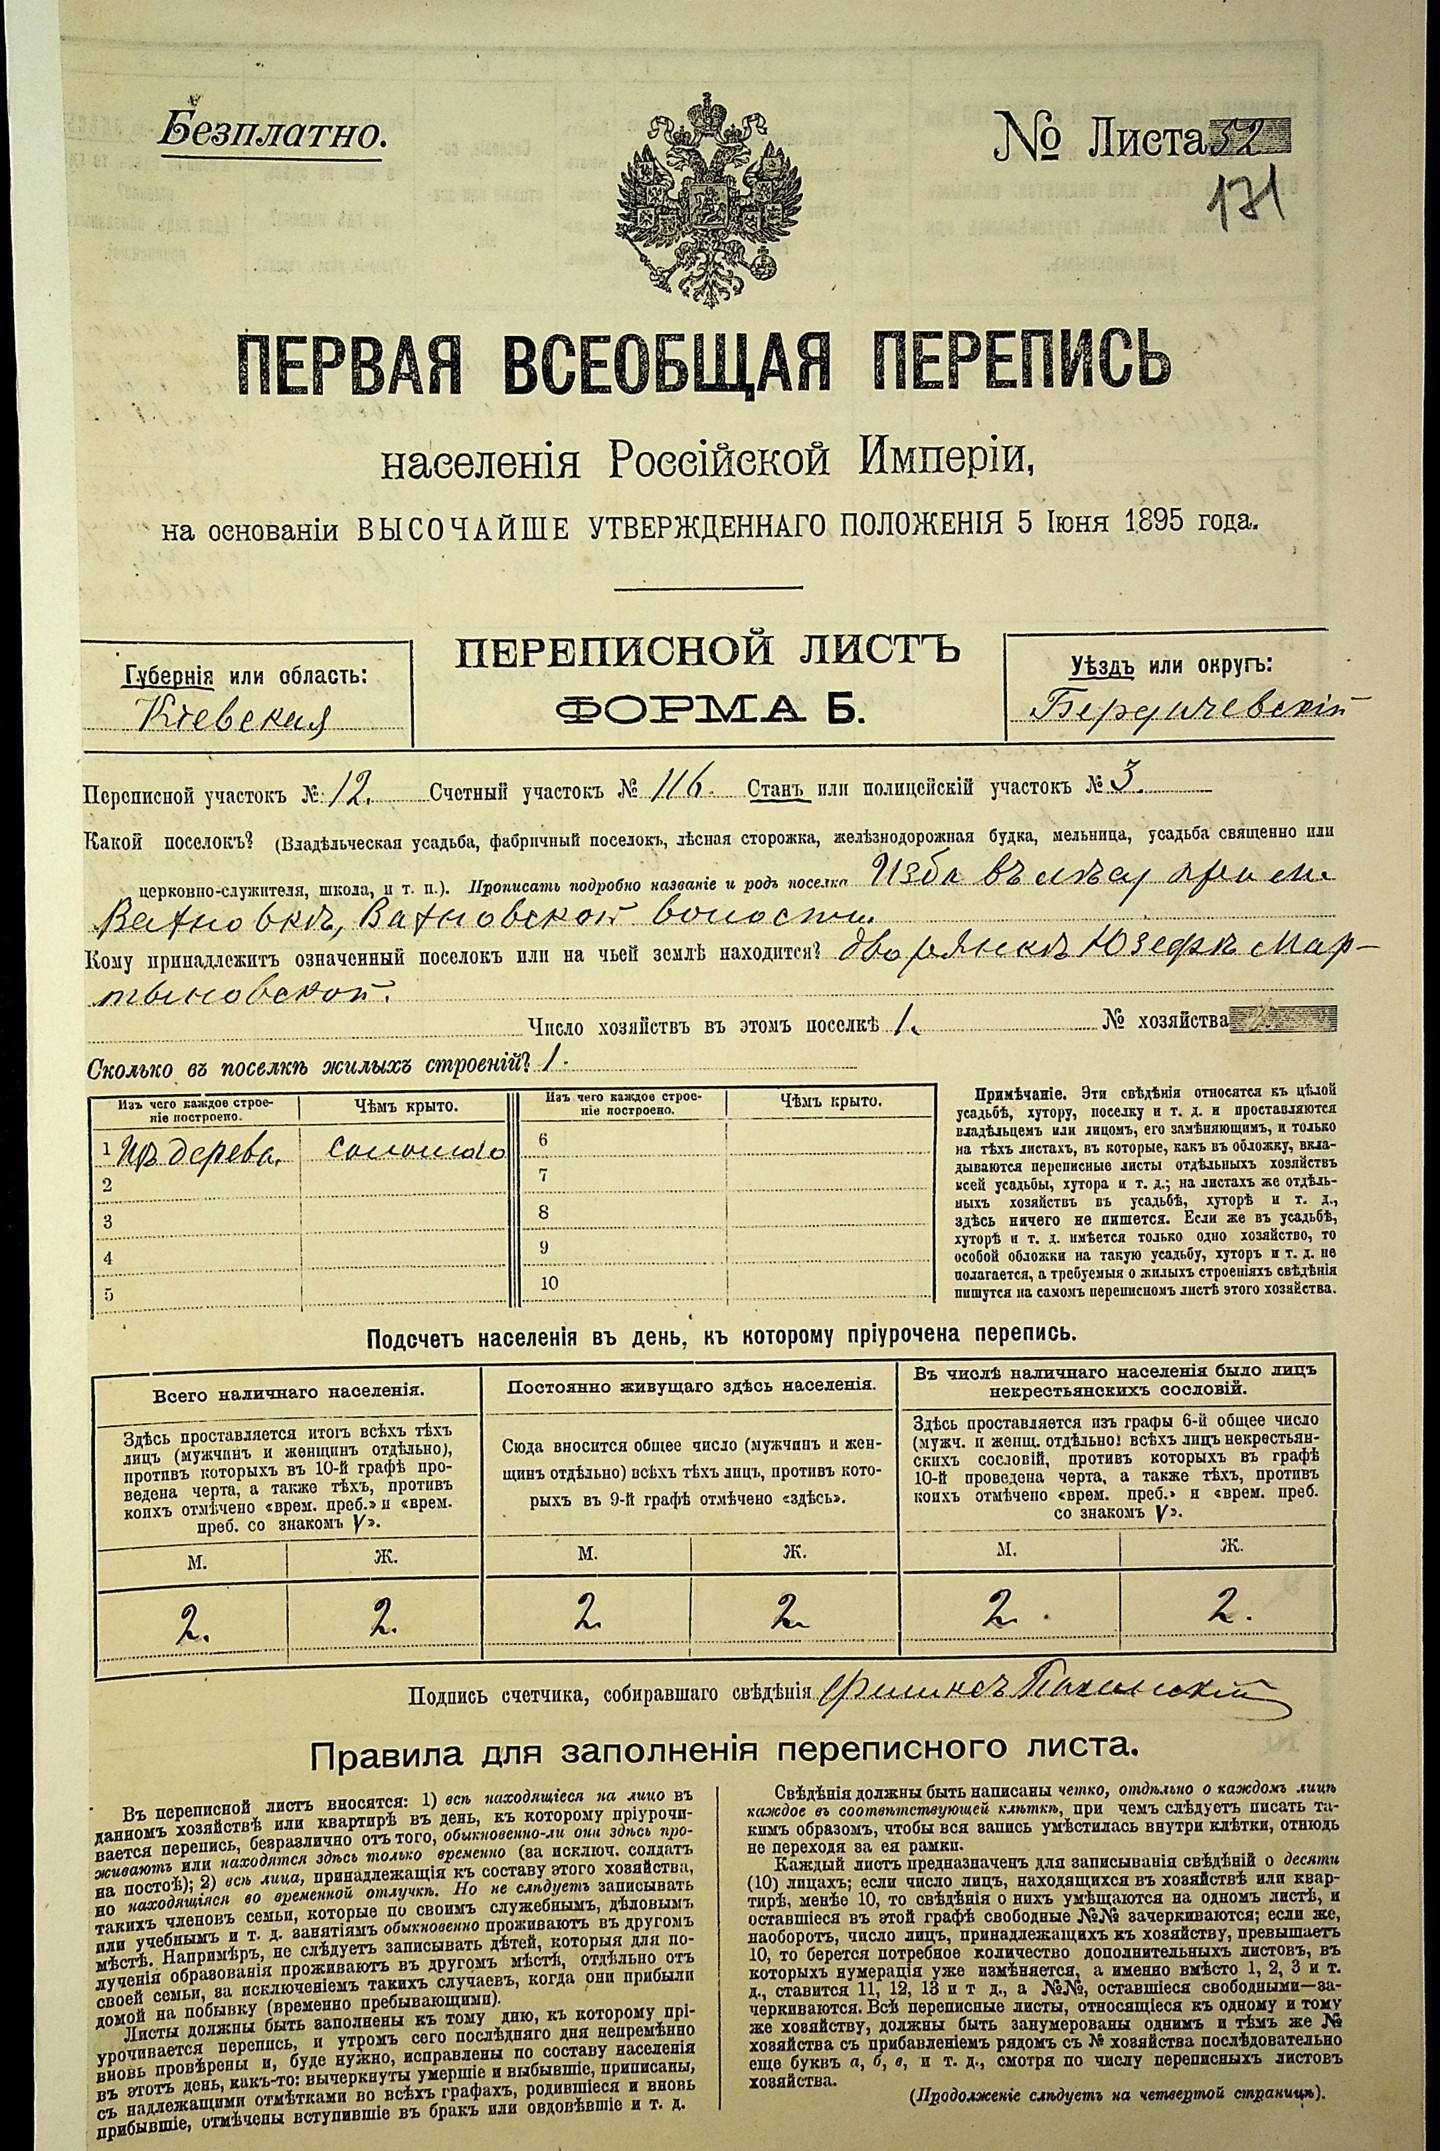 Безплатно.
№ Листа 52
171
ПЕРВАЯ ВСЕОБЩАЯ ПЕРЕПИСЬ
населенія Россійской Имперіи,
на основаніи ВЫСОЧАЙШЕ УТВЕРЖДЕННАГО ПОЛОЖЕНІЯ 5 Іюня 1895 года.
Губернія или область:
Кіевская
ПЕРЕПИСНОЙ ЛИСТЪ
ФОРМА Б.
Уѣздъ или округъ:
Бердичевскій
Переписной участокъ № 12. Счетный участокъ № 116. Станъ или полицейскій участокъ № 3.
Какой поселокъ? (Владѣльческая усадьба, фабричный поселокъ, лѣсная сторожка, желѣзнодорожная будка, мельница, усадьба священно или
церковно-служителя, школа, и т. п.). Прописать подробно названіе и родъ поселка Изба въ лѣсу при м.
Вахновкѣ, Вахновской волости.
Кому принадлежитъ означенный поселокъ или на чьей землѣ находится? дворянкѣ Юзефѣ Мар-
тыновской.
Число хозяйствъ въ этомъ поселкѣ 1. № хозяйства
Сколько въ поселкѣ жилыхъ строеній? 1.
Изъ чего каждое строе-
ніе построено.
Чѣмъ крыто.
Изъ чего каждое строе-
ніе построено.
Чѣмъ крыто.
1 Изъ дерева. соломою
2
3
4
5
6
7
8
9
10
Примѣчаніе. Эти свѣдѣнія относятся къ цѣлой
усадьбѣ, хутору, поселку и т. д. и проставляются
владѣльцемъ или лицомъ, его замѣняющимъ, и только
на тѣхъ листахъ, въ которые, какъ въ обложку, вкла-
дываются переписные листы отдѣльныхъ хозяйствъ
всей усадьбы, хутора и т. д.; на листахъ же отдѣль-
ныхъ хозяйствъ въ усадьбѣ, хуторѣ и т. д.,
здѣсь ничего не пишется. Если же въ усадьбѣ,
хуторѣ и т. д. имѣется только одно хозяйство, то
особой обложки на такую усадьбу, хуторъ и т. д. не
полагается, а требуемыя о жилыхъ строеніяхъ свѣдѣнія
пишутся на самомъ переписномъ листѣ этого хозяйства.
Подсчетъ населенія въ день, къ которому пріурочена перепись.
Всего наличнаго населенія.
Здѣсь проставляется итогъ всѣхъ тѣхъ
лицъ (мужчинъ и женщинъ отдѣльно),
противъ которыхъ въ 10-й графѣ про-
ведена черта, а также тѣхъ, противъ
коихъ отмѣчено «врем. преб.» и «врем.
преб. со знакомъ V».
М. Ж.
2. 2.
Постоянно живущаго здѣсь населенія.
Сюда вносится общее число (мужчинъ и жен-
щинъ отдѣльно) всѣхъ тѣхъ лицъ, противъ кото-
рыхъ въ 9-й графѣ отмѣчено «здѣсь».
М. Ж.
2 2
Въ числѣ наличнаго населенія было лицъ
некрестьянскихъ сословій.
Здѣсь проставляется изъ графы 6-й общее число
(мужч. и женщ. отдѣльно) всѣхъ лицъ некрестьян-
скихъ сословій, противъ которыхъ въ графѣ
10-й проведена черта, а также тѣхъ, противъ
коихъ отмѣчено «врем. преб.» и «врем. преб.
со знакомъ V».
М. Ж.
2. 2.
Подпись счетчика, собиравшаго свѣдѣнія Феликсъ
Правила для заполненія переписного листа.
Въ переписной листъ вносятся: 1) всѣ находящіеся на лицо въ
данномъ хозяйствѣ или квартирѣ въ день, къ которому пріурочи-
вается перепись, безразлично отъ того, обыкновенно-ли они здѣсь про-
живаютъ или находятся здѣсь только временно (за исключ. солдатъ
на постоѣ); 2) всѣ лица, принадлежащія къ составу этого хозяйства,
но находящіяся во временной отлучкѣ. Но не слѣдуетъ записывать
такихъ членовъ семьи, которые по своимъ служебнымъ, дѣловымъ
или учебнымъ и т. д. занятіямъ обыкновенно проживаютъ въ другомъ
мѣстѣ. Напримѣръ, не слѣдуетъ записывать дѣтей, которыя для по-
лученія образованія проживаютъ въ другомъ мѣстѣ, отдѣльно отъ
своей семьи, за исключеніемъ такихъ случаевъ, когда они прибыли
домой на побывку (временно пребывающими).
Листы должны быть заполнены къ тому дню, къ которому прі-
урочивается перепись, и утромъ сего послѣдняго дня непремѣнно
вновь провѣрены и, буде нужно, исправлены по составу населенія
въ этотъ день, какъ-то: вычеркнуты умершіе и выбывшіе, приписаны,
съ надлежащими отмѣтками во всѣхъ графахъ, родившіеся и вновь
прибывшіе, отмѣчены вступившіе въ бракъ или овдовѣвшіе и т. д.
Свѣдѣнія должны быть написаны четко, отдѣльно о каждомъ лицѣ
каждое въ соотвѣтствующей клѣткѣ, при чемъ слѣдуетъ писать та-
кимъ образомъ, чтобы вся запись умѣстилась внутри клѣтки, отнюдь
не переходя за ея рамки.
Каждый листъ предназначенъ для записыванія свѣдѣній о десяти
(10) лицахъ; если число лицъ, находящихся въ хозяйствѣ или квар-
тирѣ, менѣе 10, то свѣдѣнія о нихъ умѣщаются на одномъ листѣ, и
оставшіеся въ этой графѣ свободные №№ зачеркиваются; если же,
наоборотъ, число лицъ, принадлежащихъ къ хозяйству, превышаетъ
10, то берется потребное количество дополнительныхъ листовъ, въ
которыхъ нумерація уже измѣняется, а именно вмѣсто 1, 2, 3 и т.
д., ставится 11, 12, 13 и т д., а №№, оставшіеся свободными—за-
черкиваются. Всѣ переписные листы, относящіеся къ одному и тому
же хозяйству, должны быть занумерованы однимъ и тѣмъ же №
хозяйства съ прибавленіемъ рядомъ съ № хозяйства послѣдовательно
еще буквъ а, б, в, и т. д., смотря по числу переписныхъ листовъ
хозяйства.
(Продолженіе слѣдуетъ на четвертой страницѣ).